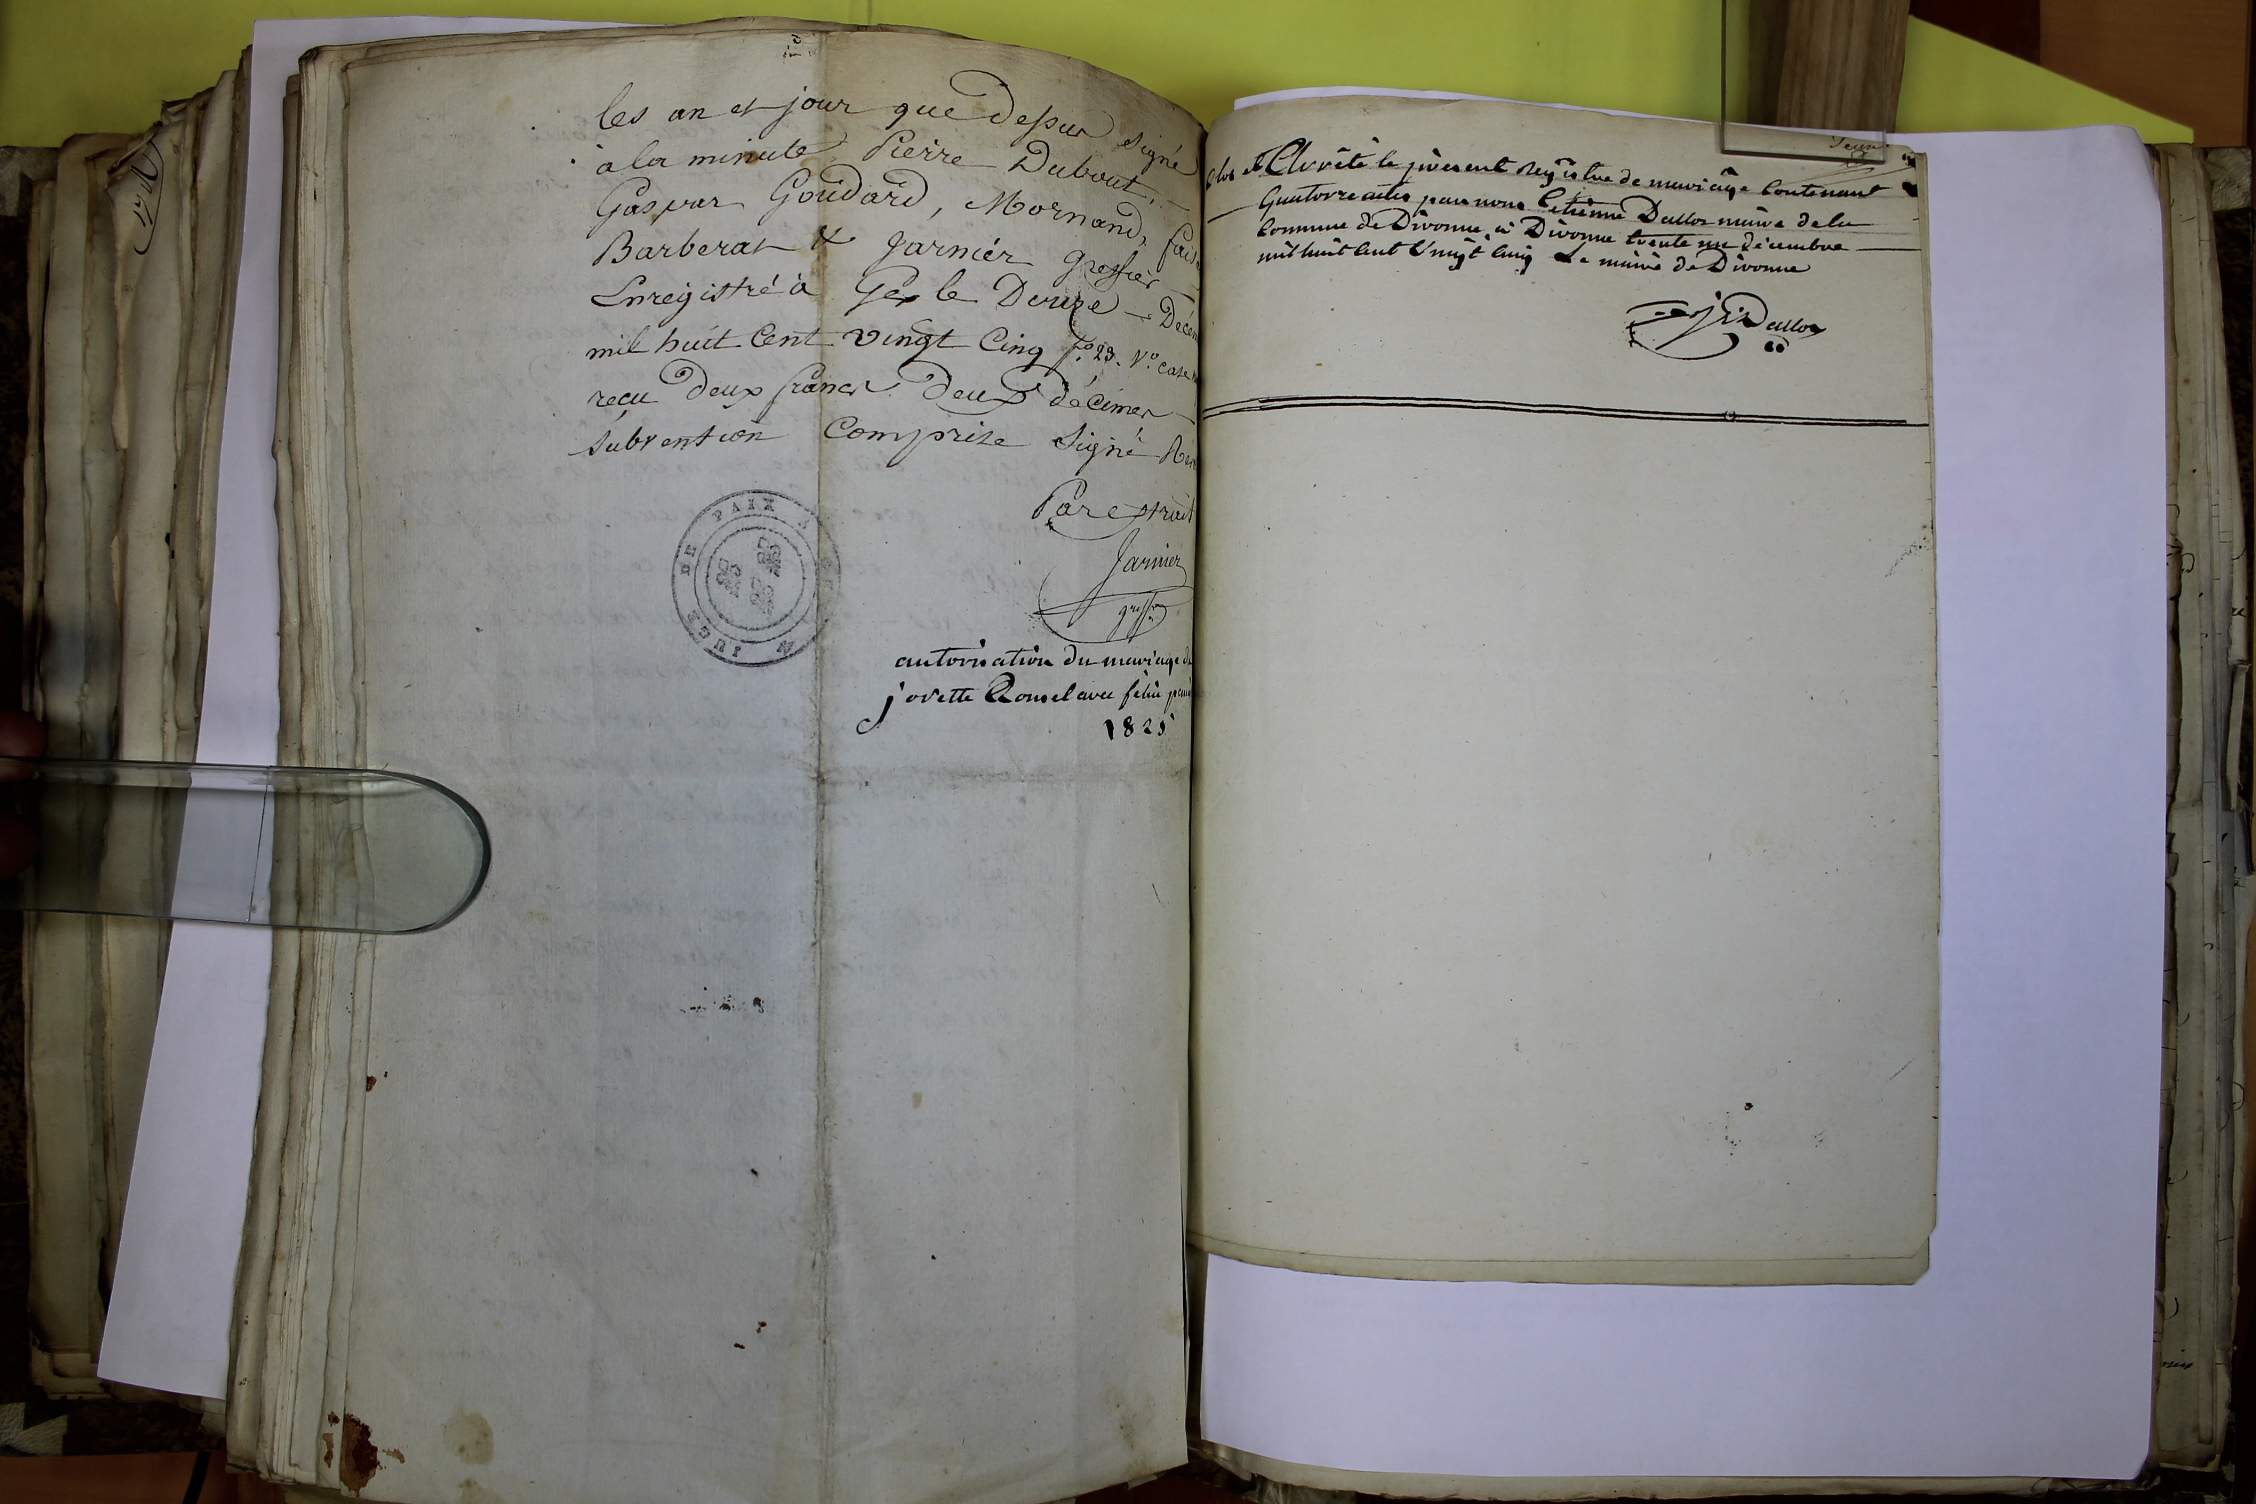 les an et jour que dessus signé
à la minute Pierre Dubout,
Gaspar Goudard, Mornand,
Barberat & Jarnier greffier
Enregistré à Gex le Douze Décem
mil huit Cent vingt Cinq f.° 23. V.° case
reçu deux francs deux décimes
subvention Comprise signé
Par extrait
Jarnier
greff.
JUGE DE PAIX
autorisation du mariage de
josette avec félix
1825
Clos et Arrêté le présent Registre de mariage Contenant
Quatorze actes par nous Etienne Dallos maire de la
Commune de Divonne à Divonne trente un décembre
mil huit Cent Vingt Cinq Le maire de Divonne
Dallos